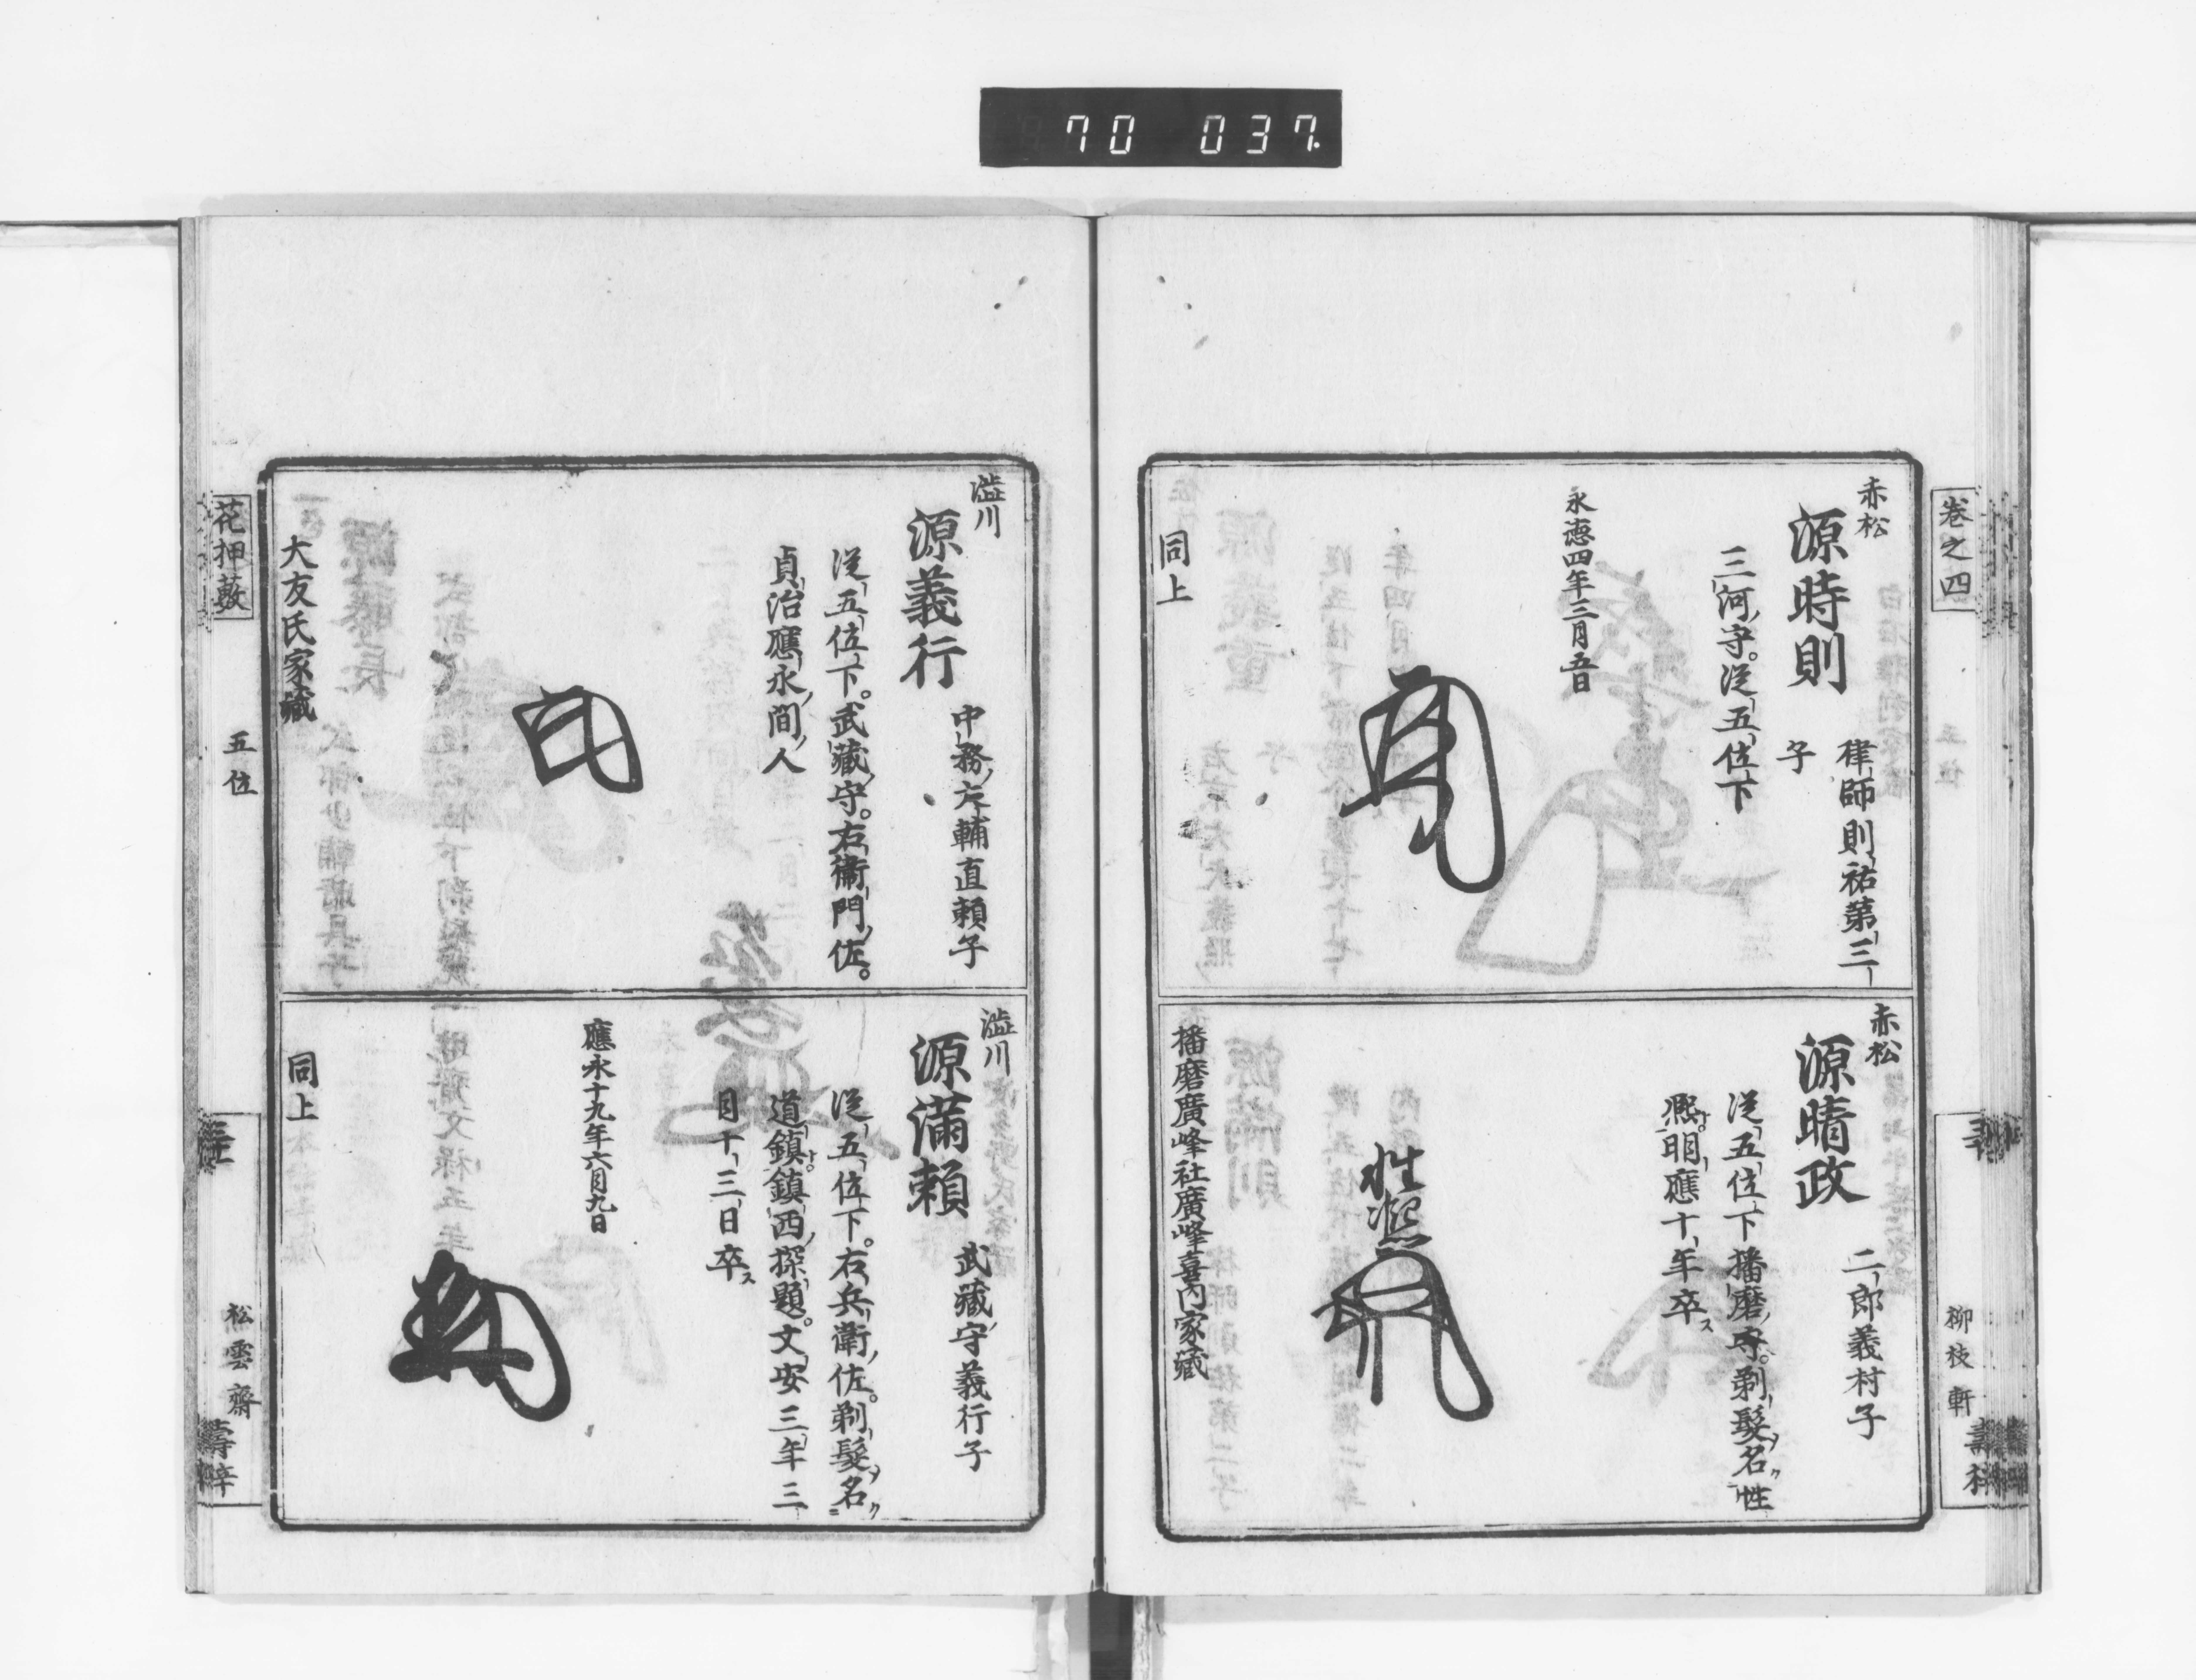 70 037.
卷之四
柳枝軒
赤松
源時則
律師則祐第三
子
三河守。從五位下
永德四年三月五日
同上
赤松
源晴政
二郎義村子
從五位下播磨守。剃髮名性
熈明應十年卒ス
性熈
播磨廣峰社廣峰喜內家藏
澁川
源義行
中務大輔直賴子
從五位下。武藏守。右衞門佐。
貞治應永間人
大友氏家藏
澁川
源滿賴
武藏守義行子
從五位下。右兵衞佐。剃髮名
道鎮鎮西探題。文安三年三
月十三日卒ス
應永十九年六月九日
同上
花押藪
五位
松雲齋